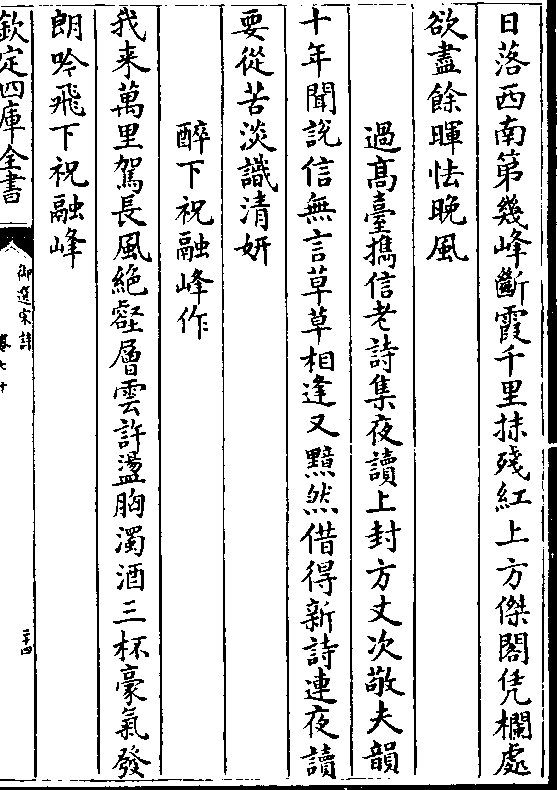 日落西南第幾峰斷霞千里抹殘紅上方傑閣凭欄處
欲盡餘暉怯晚風
過髙臺擕信老詩集夜讀上封方丈次敬夫韻
十年聞說信無言草草相逢又黯然借得新詩連夜讀
要從苦淡識清妍
醉下祝融峰作
我来萬里駕長風絶壑層雲許盪胸濁酒三杯豪氣發
朗吟飛下祝融峰
欽定四庫全書
御選宋詩
卷七十
二十四